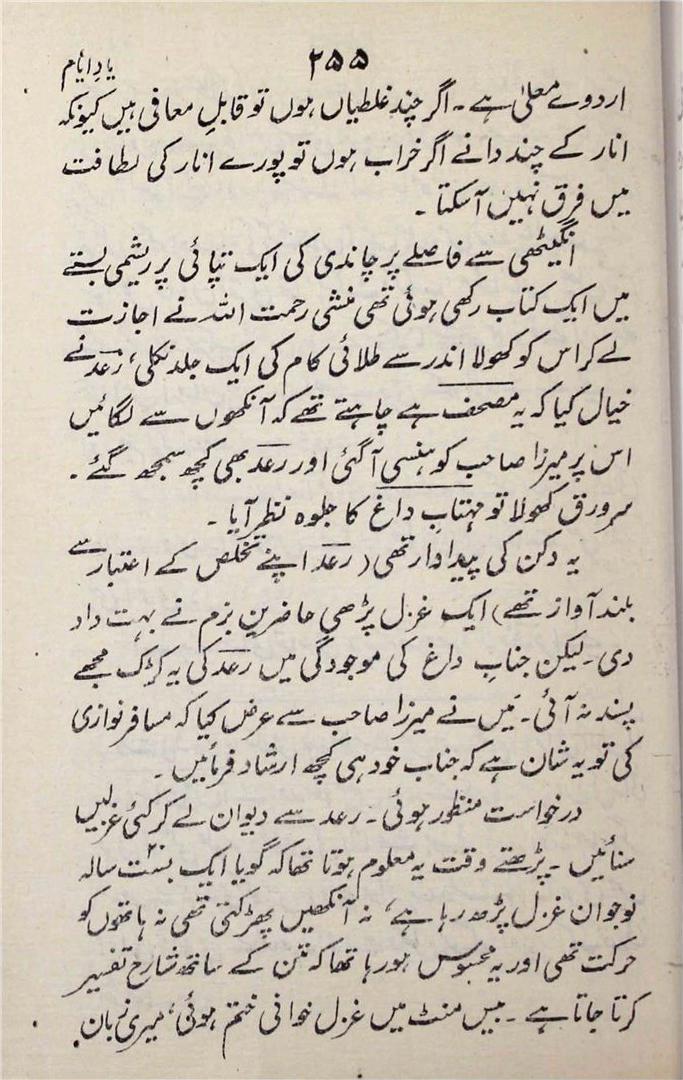 ۲۵۵
یادِ ایام
اردوے معلیٰ ہے۔ اگر چند غلطیاں ہوں تو قابلِ معافی ہیں کیونکہ
انار کے چند دانے اگر خراب ہوں تو پورے انار کی لطافت
میں فرق نہیں آسکتا۔
انگیٹھی سے فاصلے پر چاندی کی ایک تپائی پر ریشمی بستے
میں ایک کتاب رکھی ہوئی تھی منشی رحمت اللہ نے اجازت
لے کر اس کو کھولا اندر سے طلائی کام کی ایک جلد نکلی، رعد نے
خیال کیا کہ یہ مصحف ہے چاہتے تھے کہ آنکھوں سے لگائیں
اس پر میرزا صاحب کو ہنسی آگئی اور رعد بھی کچھ سمجھ گئے۔
سرورق کھولا تو مہتابِ داغ کا جلوہ نظر آیا۔
یہ دکن کی پیداوار تھی (رعد اپنے تخلص کے اعتبار سے
بلند آواز تھے) ایک غزل پڑھی حاضرینِ بزم نے بہت داد
دی۔ لیکن جنابِ داغ کی موجودگی میں رعد کی یہ کڑک مجھے
پسند نہ آئی۔ میں نے میرزا صاحب سے عرض کیا کہ مسافر نوازی
کی تو یہ شان ہے کہ جناب خود ہی کچھ ارشاد فرمائیں۔
درخواست منظور ہوئی۔ رعد سے دیوان لے کر کئی غزلیں
سنائیں۔ پڑھتے وقت یہ معلوم ہوتا تھا کہ گویا ایک بست سالہ
نوجوان غزل پڑھ رہا ہے، نہ آنکھیں پھڑکتی تھی نہ ہاتھوں کو
حرکت تھی اور یہ محبوس ہو رہا تھا کہ متن کے ساتھ شارح تفسیر
کرتا جاتا ہے۔ بیس منٹ میں غزل خوانی ختم ہوئی، میری زبان